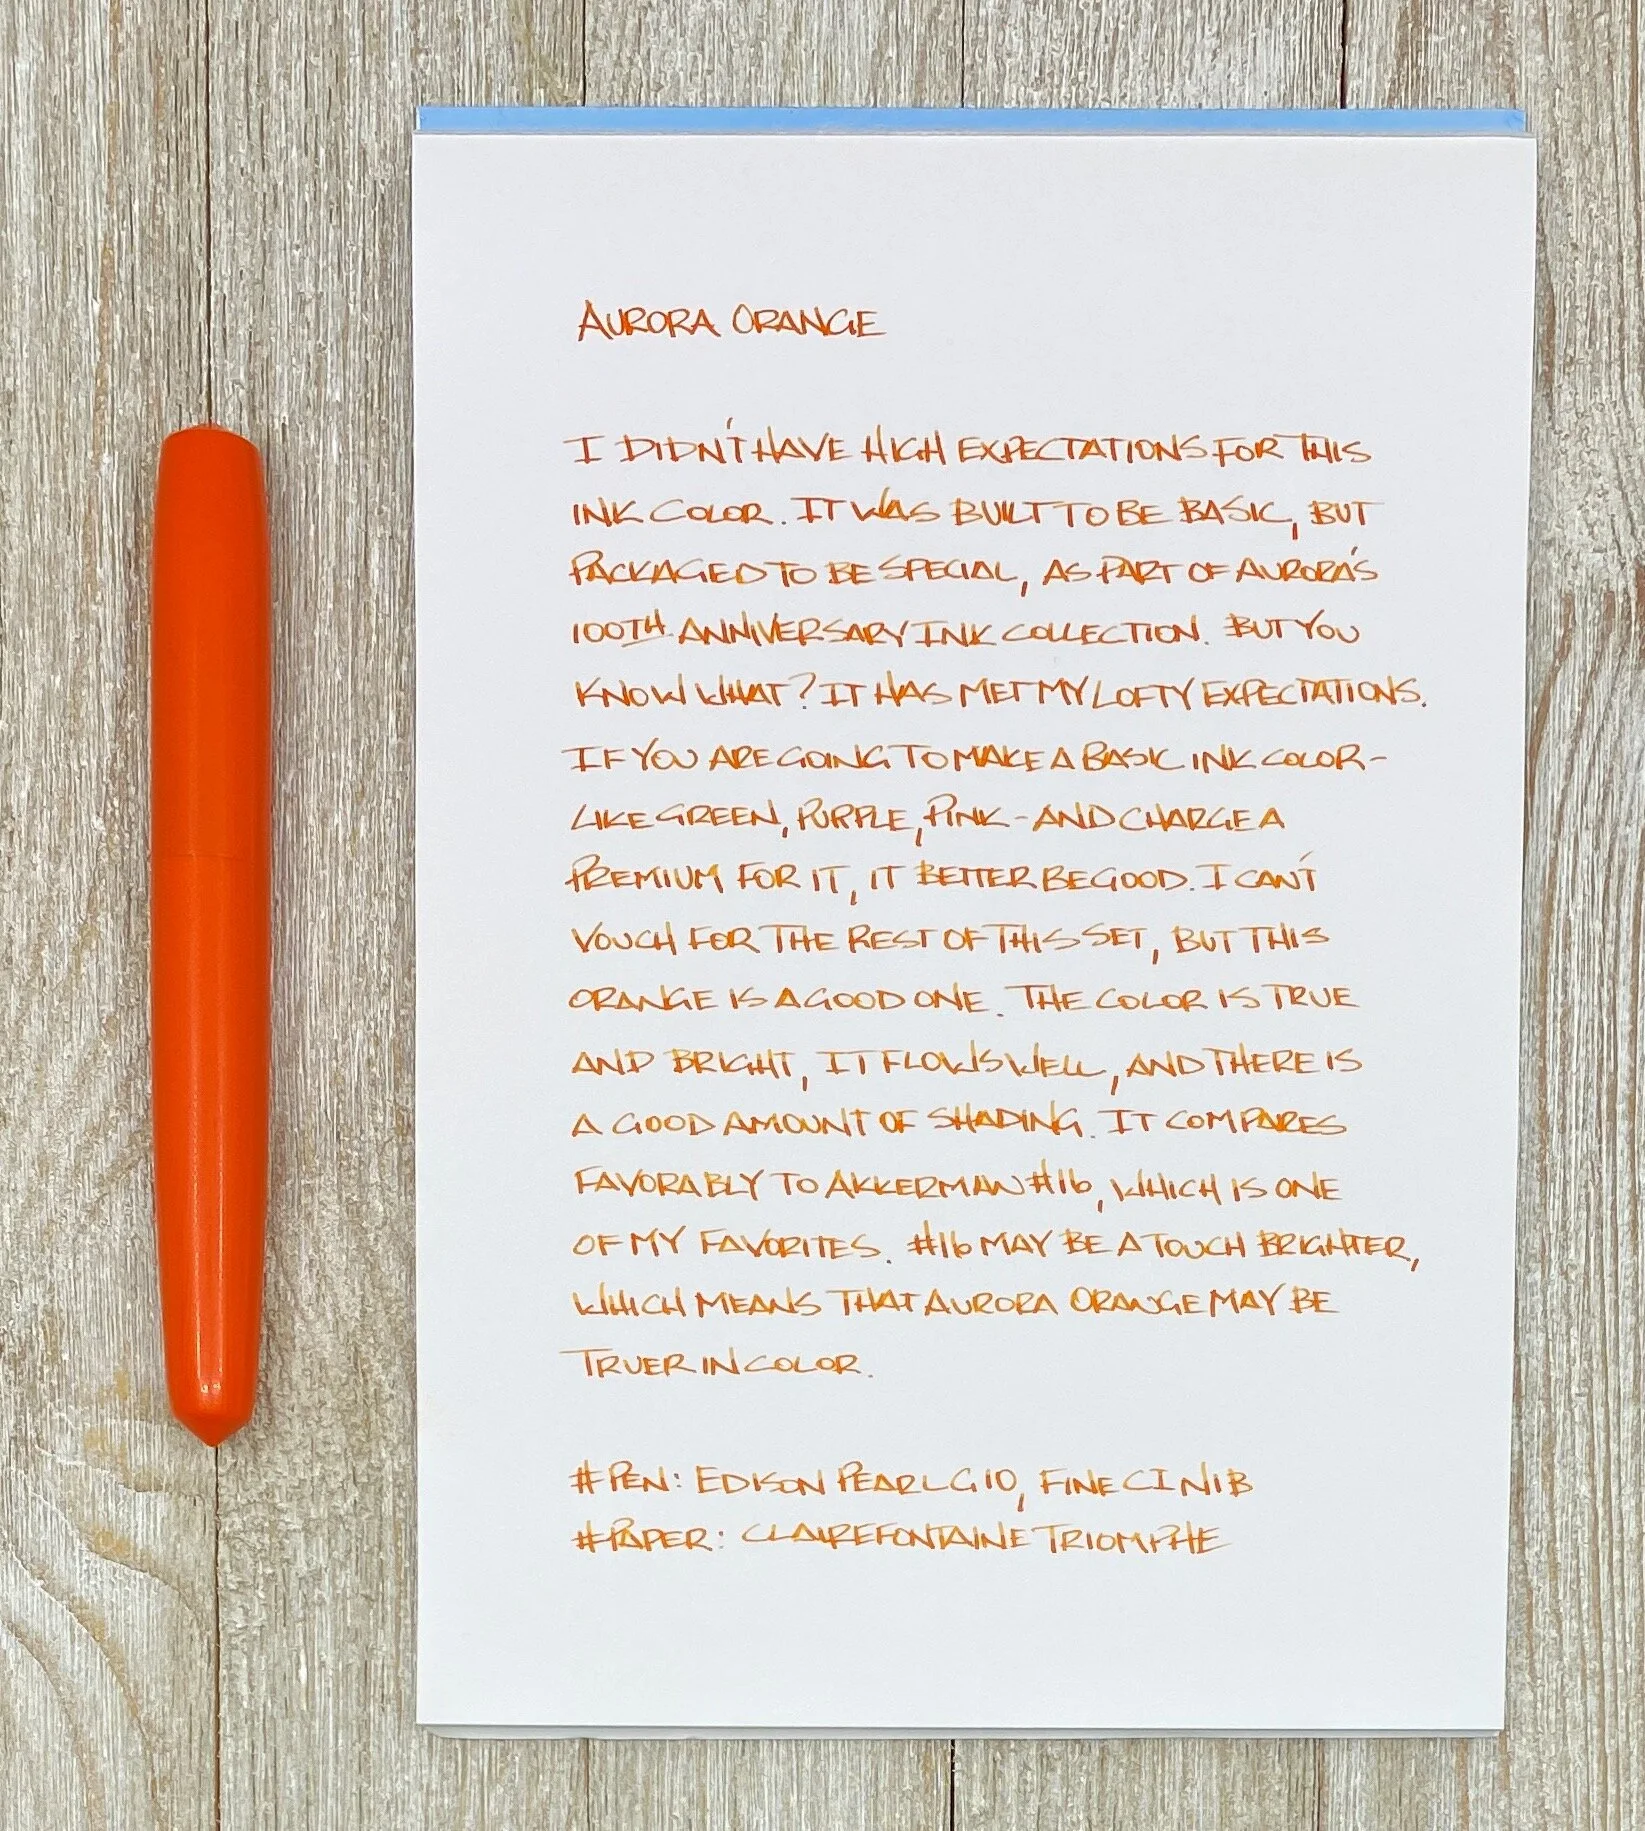 AURORA ORANGE
I DIDN'T HAVE HIGH EXPECTATIONS FOR THIS
INK COLOR. IT WAS BUILT TO BE BASIC, BUT
PACKAGED TO BE SPECIAL, AS PART OF AURORA'S
100TH ANNIVERSARY INK COLLECTION. BUT YOU
KNOW WHAT? IT HAS MET MY LOFTY EXPECTATIONS.
IF YOU ARE GOING TO MAKE A BASIC INK COLOR-
LIKE GREEN, PURPLE, PINK - AND CHARGE A
PREMIUM FOR IT, IT BETTER BE GOOD. I CAN'T
VOUCH FOR THE REST OF THIS SET, BUT THIS
ORANGE IS A GOOD ONE. THE COLOR IS TRUE
AND BRIGHT, IT FLOWS WELL, AND THERE IS
A GOOD AMOUNT OF SHADING. IT COMPARES
FAVORABLY TO AKKERMAN #16, WHICH IS ONE
OF MY FAVORITES. #16 MAY BE A TOUCH BRIGHTER,
WHICH MEANS THAT AURORA ORANGE MAY BE
TRUER IN COLOR.
#PEN: EDISON PEARL G10, FINE CI NIB
#PAPER: CLAIREFONTAINE TRIOMPHE